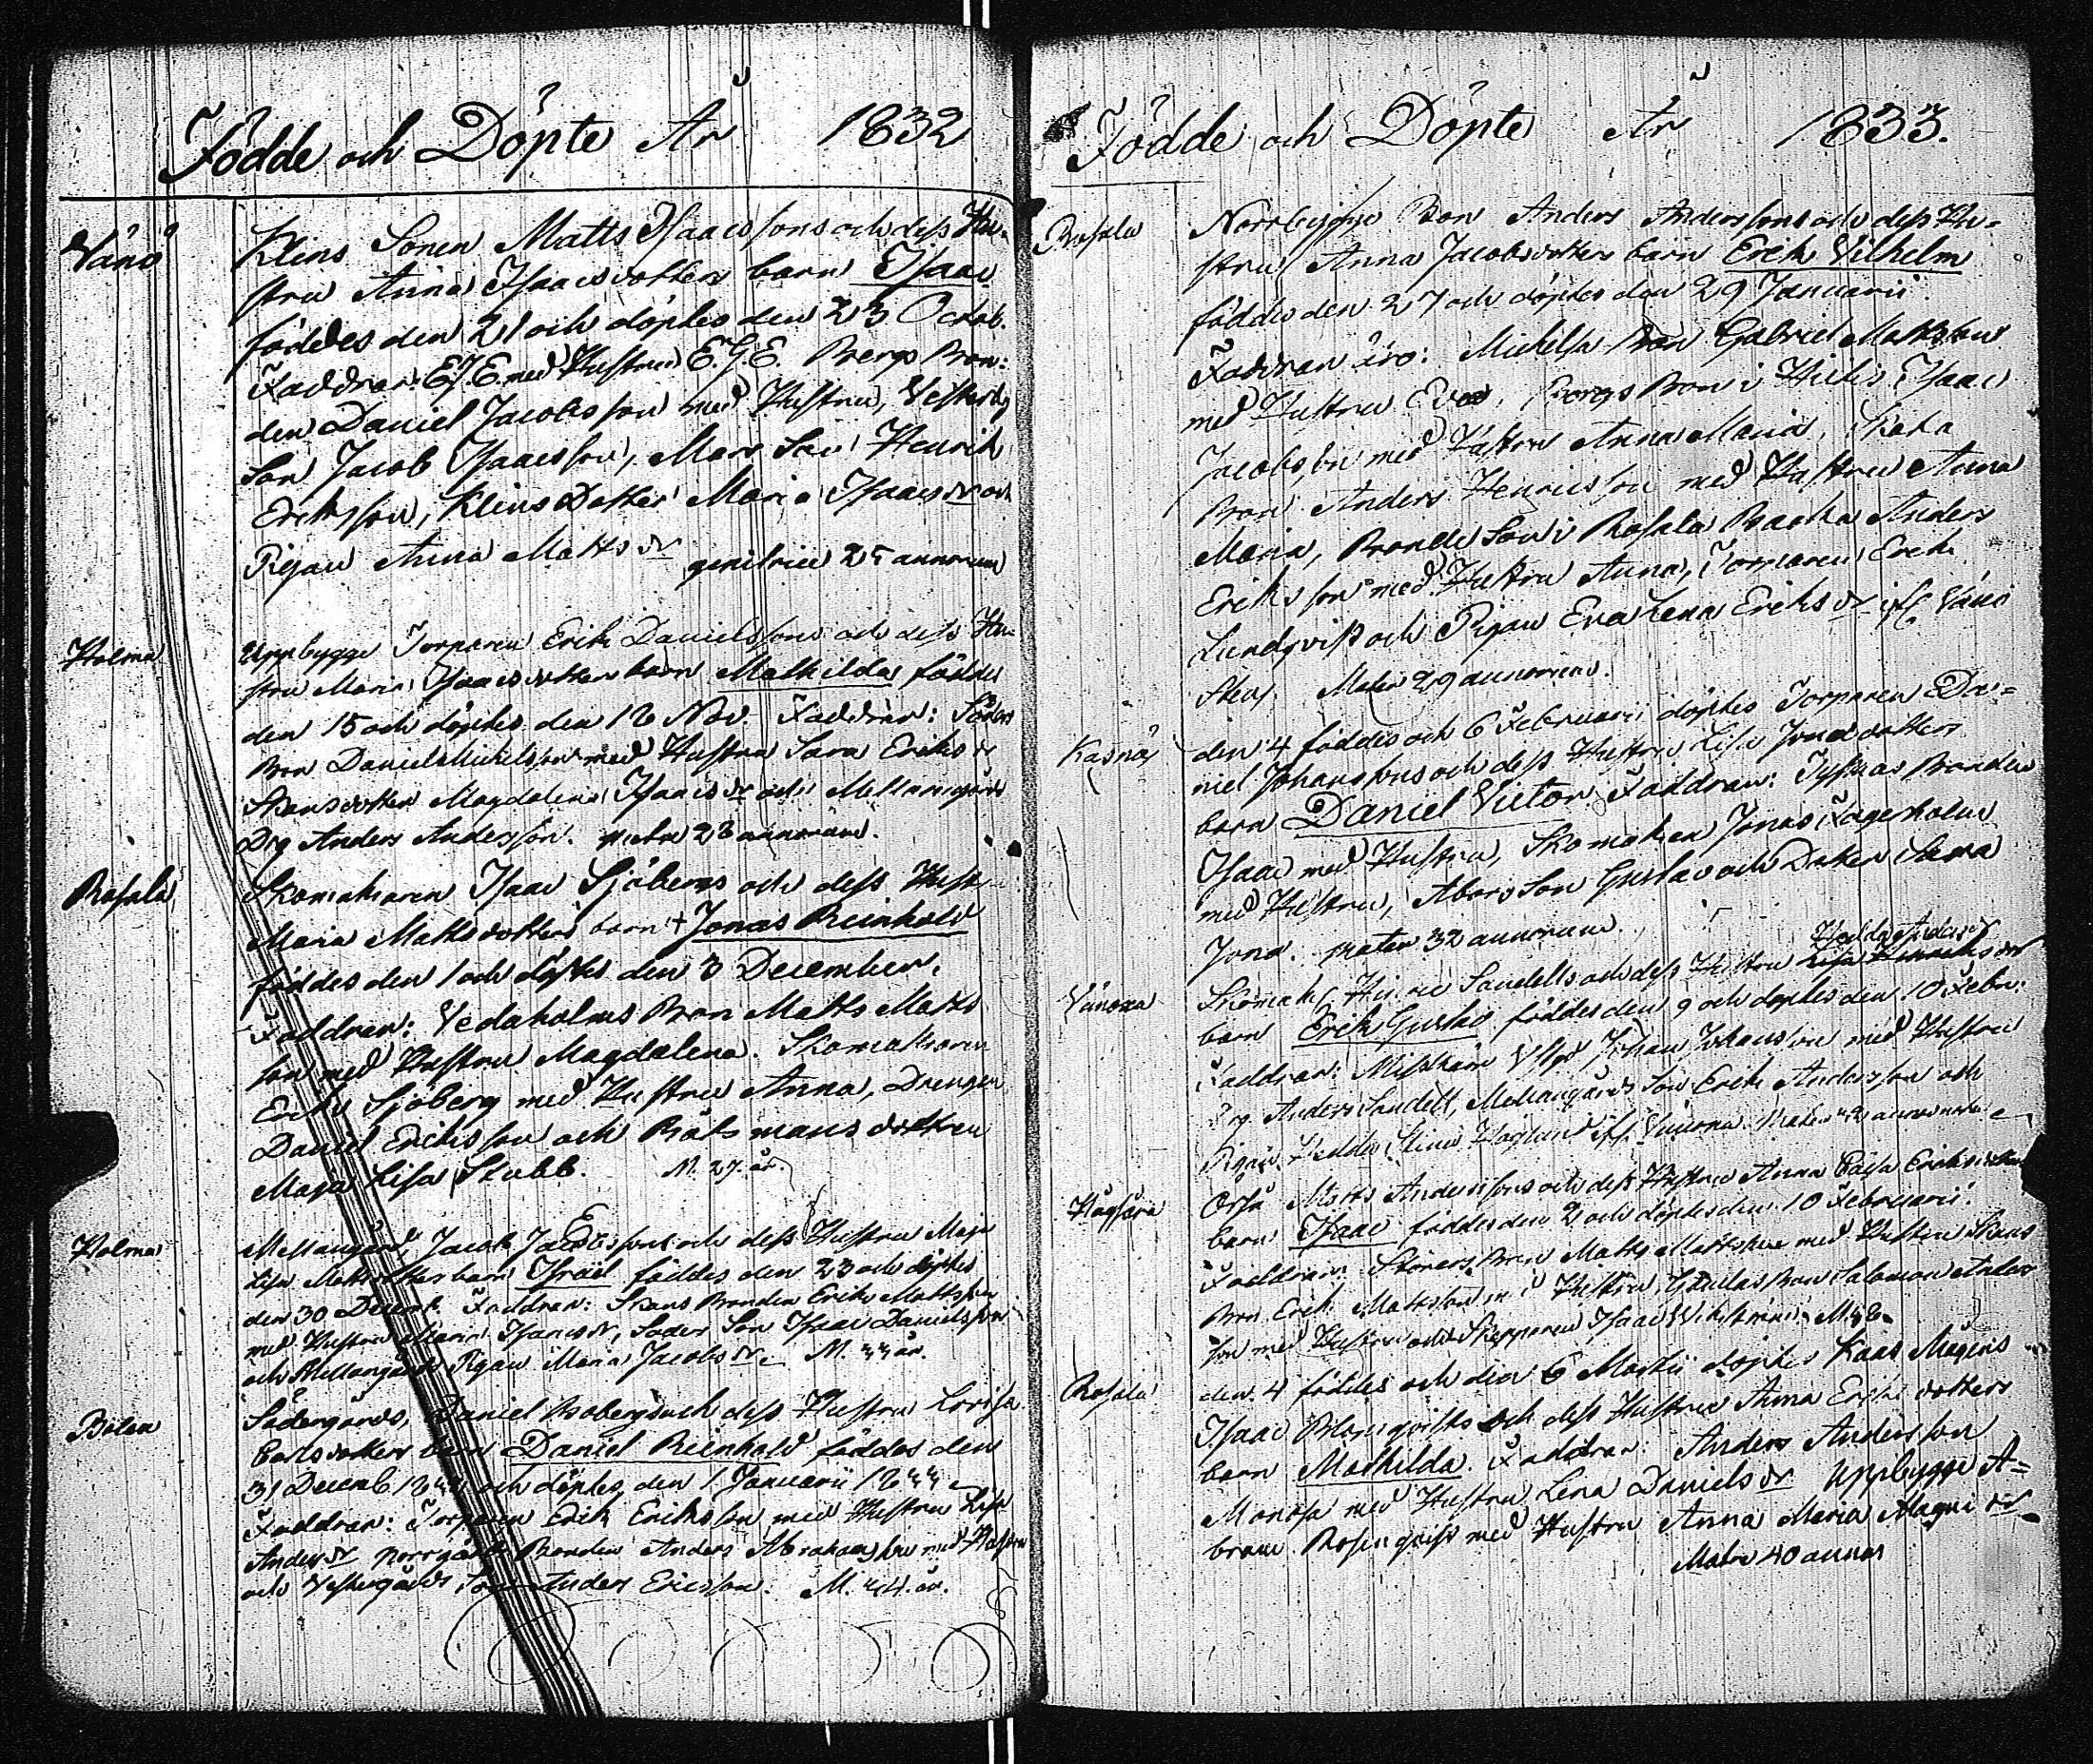 Födde och Döpte År 1832
Vänö
Kleins Sonen Matts Isaacssons och dess Hu-
stru Anna Isaacsdotters barn Isaac
föddes den 21 och döptes den 23 Octob.
Faddrar: E.J.E. med Hustru E.G.E. Bergs Bon:
den Daniel Jacobsson med Hustru, Vesterby
Son Jacob Isaacsson, Mars Son Henrik
Eriksson, Kleins Dotter Maria Isaacsdr och
Pigan Anna Mattsdr genitrice 25 annorum
Holma
Uppbygge Torparen Erik Danielssons och dess Hu-
stru Maria Isaacsdotters barn Mathilda föddes
den 15 och döptes den 18 Nov. Faddrar: Söders
Bon Daniel Mickelsson med Hustru Sara Eriksdr
Skansdotter Magdalena Isaacsdr och Mellangårds
Drg Anders Andersson. mater 28 annorum.
Rosala
Skomakaren Isaac Sjöbergs och dess Hust
Maria Mattsdotters barn + Jonas Reinhold
föddes den 1 och döptes den 3 December.
Faddrar: Vedaholms Bon Matts Matts
son med Hustru Magdalena. Skomakaren
Erik Sjöberg med Hustru Anna, Drengen
Daniel Eriksson och Båtsmans dottren
Maja Lisa Stubb. M. 27 år.
Holma
Mellangård, Jacob Jacobssons och dess Hustru Maja
Lisa Mattsdotters barn Israel föddes den 23 och döptes
den 30 Decemb. Faddrar: Skans Bonden Erik Mattsson
med Hustru Maria Isaacsdr, Söders Son Isaac Danielsson
och Mellangårds Pigan Maria Jacobsdr. M. 33 år.
Bölen
Södergårds, Daniel Bobergs och dess Hustru Lovisa
Carlsdotters barn Daniel Reinhold föddes den
31 Decemb. och döptes den 1 Januarii 1833
Faddrar: Torparen Erik Eriksson med Hustru Lisa
Andersdr Norrgårds Bonden Anders Abrahamsson med Hustru
och Vestergårds Son Anders Ericsson. M. 34 år.
Födde och Döpte År 1833.
Rosala
Norrbygge Bon Anders Anderssons och dess Hu-
stru Anna Jacobsdotters barn Erik Vilhelm
föddes den 27 och döptes den 29 Januarii.
Faddran äro: Michels Bon Gabriel Mattsson
med Hustru Eva, Borgs Bon i Hitis Isaac
Jacobsson med Hustru Anna Maria, Skata
Bon Anders Henricsson med Hustru Anna
Maria, Bonde Son i Rosala Backa Anders
Eriksson med Hustru Anna, Torparen Erik
Lundqvist och Pigan Eva Lena Eriksdr ifr Vänö
Mater 29 annorum.
Kasnäs
den 4 föddes och 6 Februarii döptes Torparen Da-
niel Johanssons och dess Hustru Lisa Jonædotters
barn Daniel Victor. Faddrar: Bonden
Isaac med Hustru, Skomakaren Jonas Fagerholm
med Hustru, Abors Son Gustav och Dotter Sara
Jona. mater 32 annorum.
Vänoxa
Hedda Andersdr
Skomak: Sandells och dess Hustru Lisa Henriksdr
barn Erik Gustav föddes den 9 och döptes den 10 Febr:
Faddrar: Johan Johansson med Hustru
Drg Anders Sandell, Mellangårds Son Erik Andersson och
Pigan Hedda Stina Höglund ifr Vänoxa. Mater 42 annorum
Högsåra
Matts Anderssons och dess Hustru Anna Caisa Eriksdotters
barn Isaac föddes den 2 och döptes den 10 Februarii.
Faddrar: Bon Matts Mattsson med Hustru Skans
Bon Erik Mattsson med Hustru, Bon Salomon Anders
son med Hustru och Skepparen Isaac Wikström. M. 38.
Rosala
den 4 föddes och den 6 Martii döptes Kaas Mågens
Isaac Blomqvists och dess Hustru Anna Eriksdotters
barn Mathilda. Faddrar: Anders Andersson
Monosa med Hustru Lena Danielsdr Uppbygge A-
bram Rosenqvist med Hustru Anna Maria Magnidr
Mater 40 annor